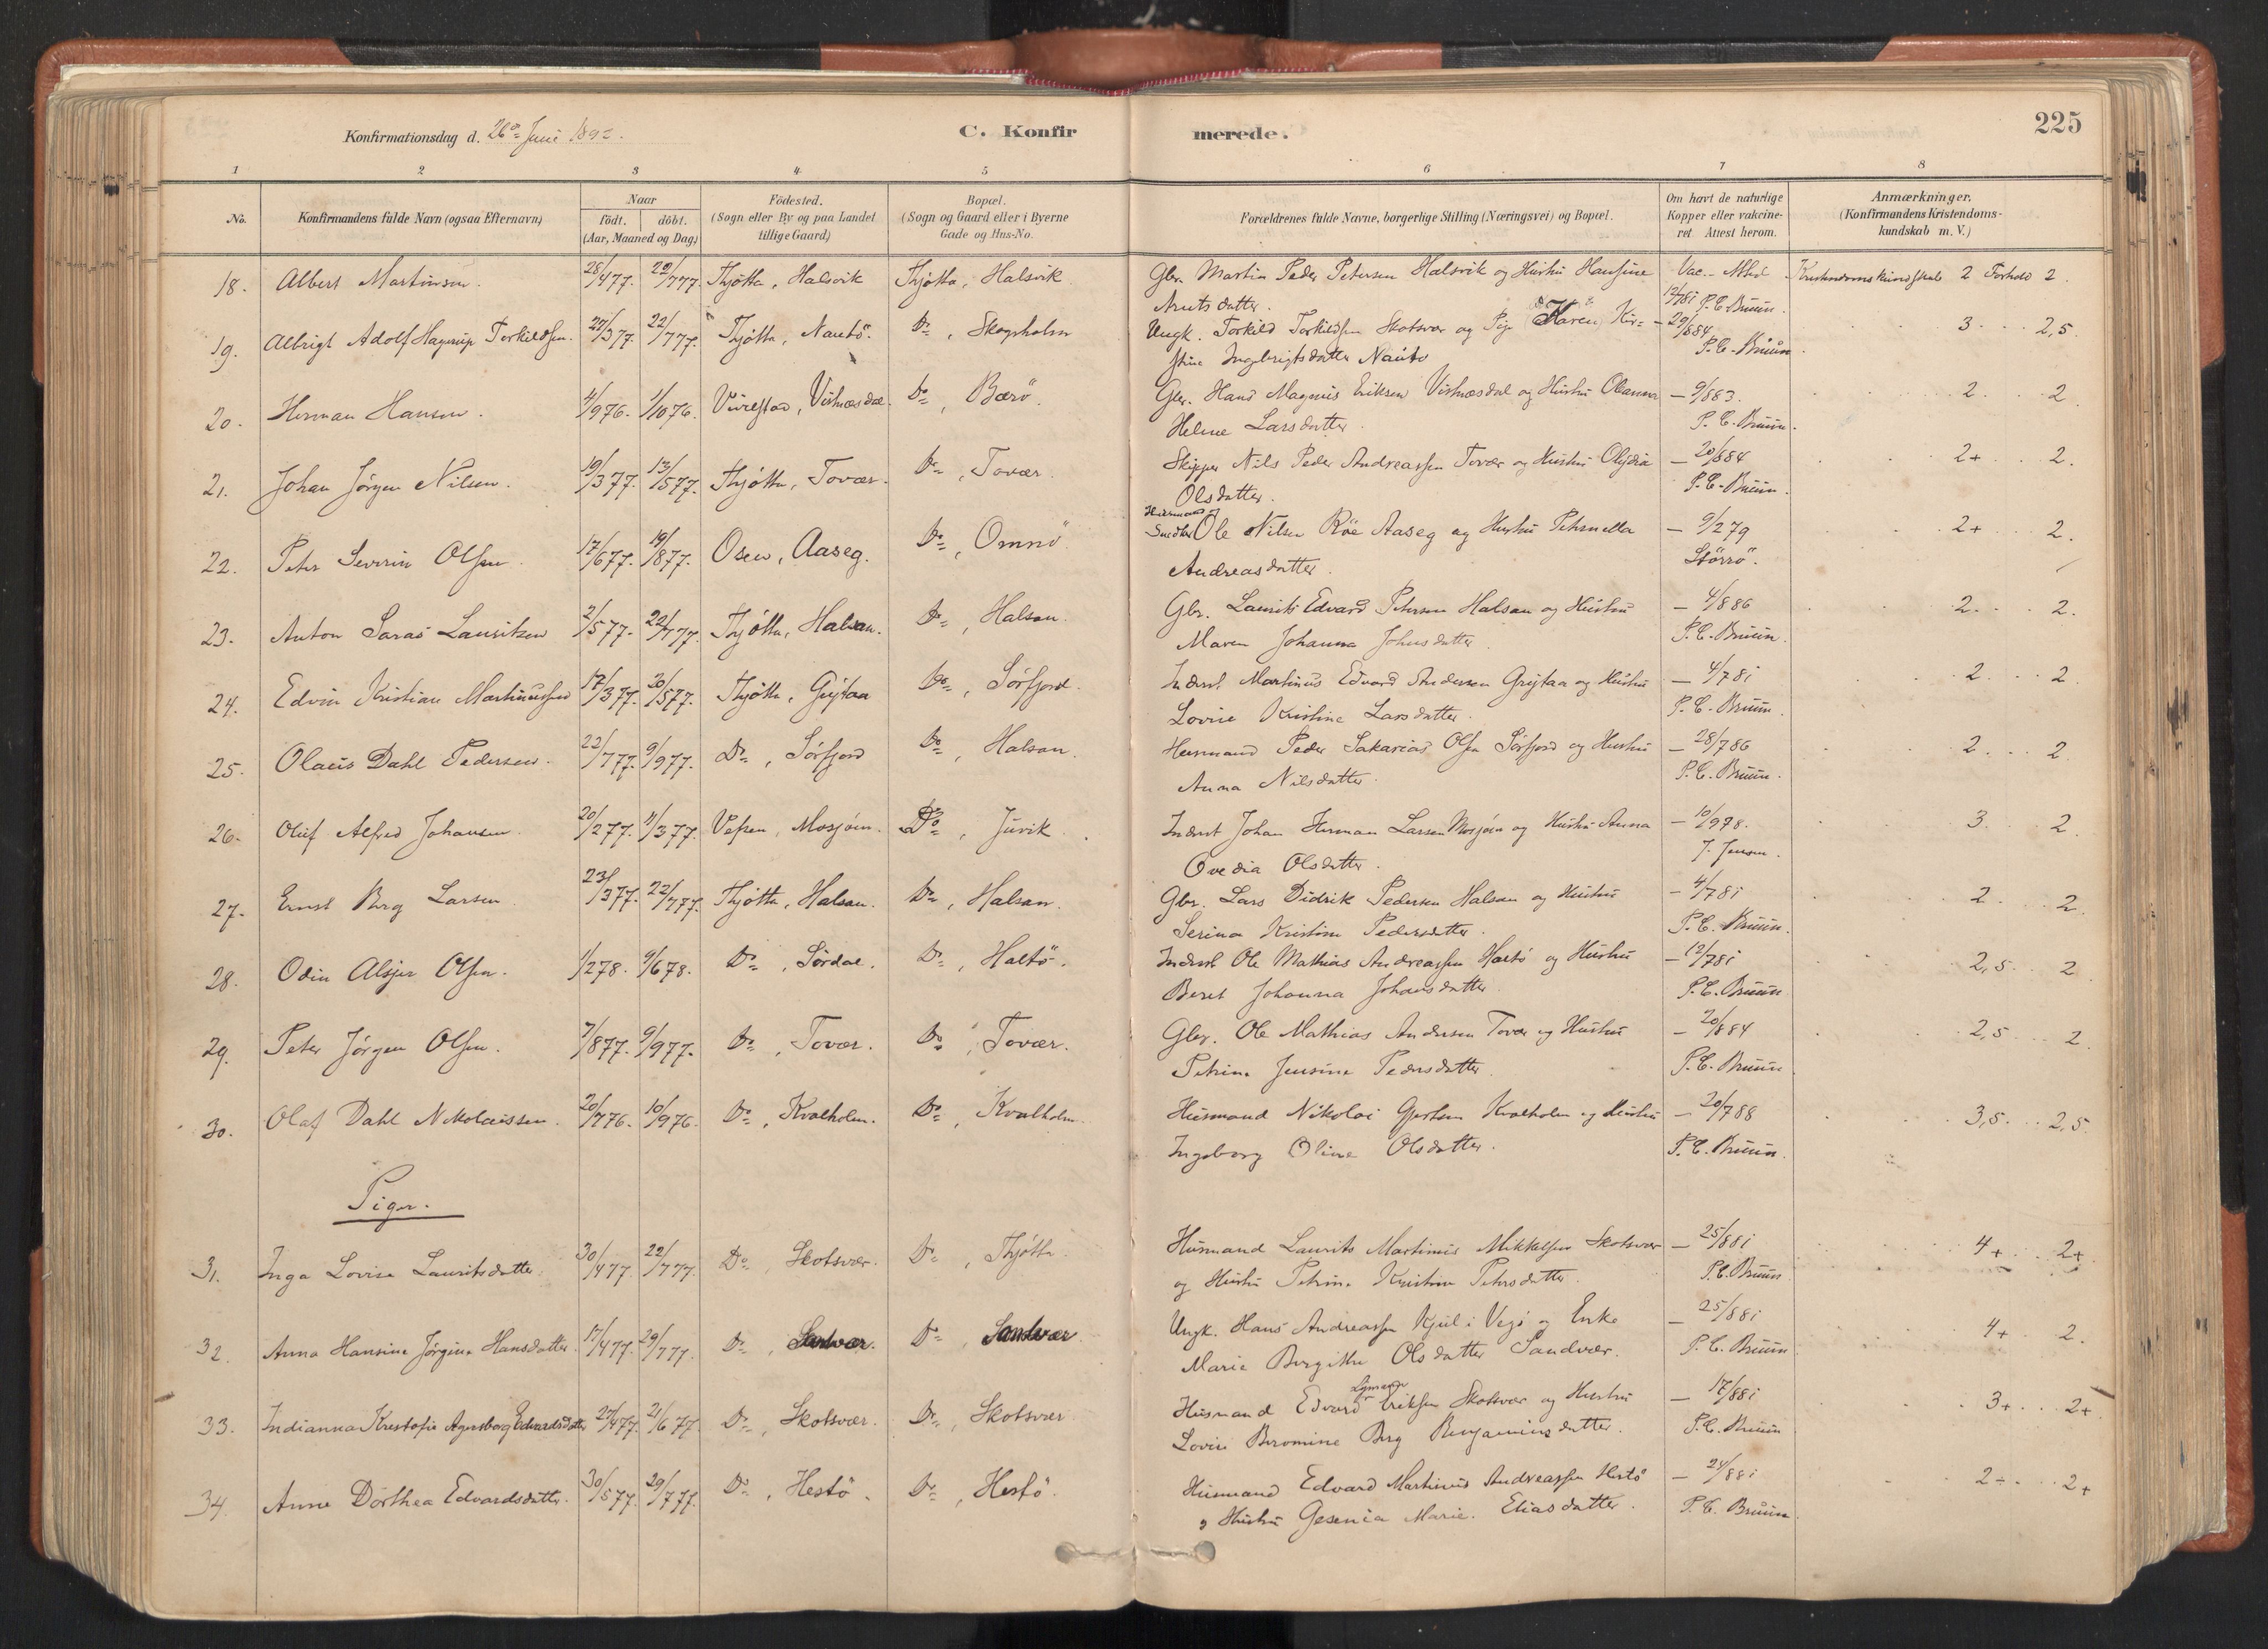 225
Konfirmationsdag d. 26de Juni 1892.
C. Konfir merede.
1 2 3 4 5 6 7 8
No. Konfirmandens fulde Navn (ogsaa Efternavn) Naar födt. döbt. (Aar, Maaned og Dag) Födested. (Sogn eller By og paa Landet tillige Gaard) Bopæl. (Sogn og Gaard eller i Byerne Gade og Hus-No. Forældrenes fulde Navne, borgerlige Stilling (Næringsvei) og Bopæl. Om havt de naturlige Kopper eller vakcineret. Attest herom. Anmærkninger. (Konfirmandens Kristendomskundskab m. V.)
18. Albert Martinsen. 28/477. 22/777. Thjötta, Halsvik Thjötta, Halsvik Gbr. Martin Peder Petersen Halsvik og Hustru Hansine Vac. Attest Kristendomskundskab 2 Forhold 2.
Arntsdatter. 12/781 P.C. Bruun.
19. Albrigt Adolf Hagerup Torkildsen. 22/377. 22/777. Thjötta, Nautö. Do, Skogsholm Ungk. Torkild Torkildsen Skotsvær og Pige Karen Kir= – 29/884 3 2,5.
stine Ingebrigtsdatter Nautö P.C. Bruun.
20. Herman Hansen. 4/976. 1/1076. Vivelstad, Vistnæsdal. Do, Bærö Gbr. Hans Magnus Eriksen Vistnæsdal og Hustru Olianna – 9/883. 2 2.
Helene Larsdatter. P.C. Bruun.
21. Johan Jörgen Nilsen. 19/377. 13/577. Thjötta, Tovær. Do, Tovær. Skipper Nils Peder Andreassen Tovær og Hustru Olydia – 20/884 2+ 2.
Olsdatter. P.C. Bruun.
22. Peter Severin Olsen. 17/677. 19/877. Osen, Aaseg. Do, Omnö. Husmand og Snedker Ole Nilsen Röe Aaseg og Hustru Petrnella – 9/279 2+ 2.
Andreasdatter. Störrö.
23. Anton Saras Lauritzen 2/577. 22/777. Thjötta, Halsan. Do, Halsan. Gbr. Laurits Edvard Petersen Halsan og Hustru – 4/886 2. 2.
Maren Johanna Johnsdatter. P.C. Bruun.
24. Edvin Kristian Martinussen 17/377. 20/577. Thjötta, Grytaa Do, Sörfjord. Inderst Martinus Edvard Andersen Grytaa og Hustru – 4/781 2 2.
Lovise Kristine Larsdatter. P.C. Bruun.
25. Olaus Dahl Pedersen. 22/777. 9/977. Do, Sörfjord Do, Halsan. Husmand Peder Sakarias Olsen Sörfjord og Hustru – 28/786 2 2.
Anna Nilsdatter. P.C. Bruun.
26. Oluf Alfred Johansen. 20/277. 11/377. Vefsen, Mosjöen. Do, Juvik. Inderst Johan Herman Larsen Mosjöen og Hustru Anna – 10/978. 3. 2.
Ovedia Olsdatter. J. Jensen.
27. Ernst Berg Larsen 23/377. 22/777. Thjötta, Halsan. Do, Halsan. Gbr. Lars Didrik Pedersen Halsan og Hustru – 4/781 2. 2.
Serina Kristine Pedersdatter. P.C. Bruun.
28. Odin Alsjer Olsen. 1/278. 9/678. Do, Sördal. Do, Hastö. Inderst Ole Mathias Andreassen Hastö og Hustru – 12/781 2,5. 2
Beret Johanna Johansdatter. P.C. Bruun
29. Peter Jörgen Olsen. 7/877. 9/977. Do, Tovær. Do, Tovær. Gbr. Ole Mathias Andersen Tovær og Hustru – 20/884 2,5 2.
Petrine Jensine Pedersdatter. P.C. Bruun
30. Olaf Dahl Nikolaissen. 20/776. 10/976. Do, Kvalholm. Do, Kvalholm. Husmand Nikolai Gjertsen Kvalholm og Hustru – 20/788 3,5. 2,5.
Ingeborg Oline Olsdatter. P.C. Bruun.
Piger.
31. Inga Lovise Lauritsdatter. 30/477. 22/777. Do, Skotsvær. Do, Thjötta. Husmand Laurits Martinus Mikkelsen Skotsvær – 25/881 4+ 2+
og Hustru Petrine Kristine Petersdatter. P.C. Bruun
32. Anna Hansine Jörgine Hansdatter. 17/477. 29/777. Do, Sandvær. Do, Sandvær. Ungk. Hans Andreassen Kjul i Vegö og Enke – 25/881 4+ 2.
Marie Bergitte Olsdatter Sandvær. P.C. Bruun
33. Indianna Krestofie Agnsborg Edvardsdatter 27/477. 21/677. Do, Skotsvær. Do, Skotsvær Husmand Edvard Lyman Eriksen Skotsvær og Hustru – 17/881 3+ 2+
Lovise Beromine Berg Benjaminsdatter. P.C. Bruun
34. Anne Dorthea Edvardsdatter. 30/577. 29/777. Do, Hestö. Do, Hestö. Husmand Edvard Martinus Andreassen Hestö – 24/881 2+ 2+
og Hustru Gesenia Marie. Eliasdatter. P.C. Bruun.